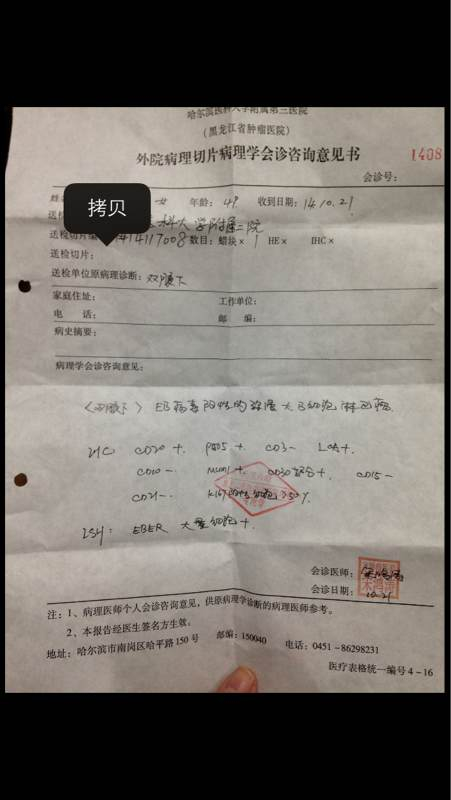 哈尔滨医科大学附属第三医院
(黑龙江省肿瘤医院)
外院病理切片病理学会诊咨询意见书
1408
会诊号:
拷贝
女 年龄: 49 收到日期: 14.10.21
科大学附属二院
送检切片 14117008 数目: 蜡块× 1 HE× IHC×
送检切片:
送检单位原病理诊断: 双腋下
家庭住址: 工作单位:
电 话: 邮 编:
病史摘要:
病理学会诊咨询意见:
腋下) EB病毒阳性的弥漫大B细胞淋巴瘤.
IHC: CD20+. PAX5+. CD3-. LCA+.
CD10-. MUM1+. CD30部分+. CD15-
CD21-. Ki67阳性细胞 50%.
ISH: EBER 大量细胞+.
会诊医师:
会诊日期: 10.21
注: 1、病理医师个人会诊咨询意见,供原病理学诊断的病理医师参考。
2、本报告经医生签名方生效。
地址: 哈尔滨市南岗区哈平路150号 邮编: 150040 电话: 0451-86298231
医疗表格统一编号4-16